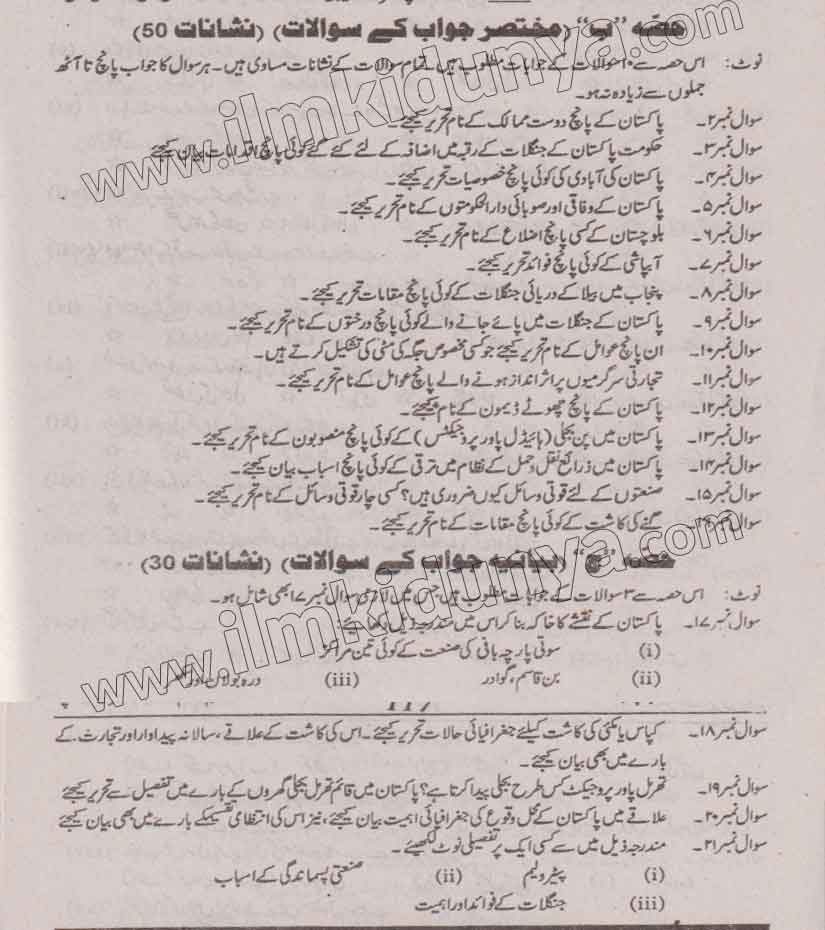 حصّہ "ب" (مختصر جواب کے سوالات) (نشانات 50)
نوٹ: اس حصہ سے ۱۰ سوالات کے جوابات مطلوب ہیں۔ تمام سوالات کے نشانات مساوی ہیں۔ ہر سوال کا جواب پانچ تا آٹھ
جملوں سے زیادہ نہ ہو۔
سوال نمبر ۲۔ پاکستان کے پانچ دوست ممالک کے نام تحریر کیجئے۔
سوال نمبر ۳۔ حکومت پاکستان کے جنگلات کے رقبہ میں اضافہ کے لئے کئے گئے کوئی پانچ اقدامات بیان کیجئے
سوال نمبر ۴۔ پاکستان کی آبادی کی کوئی پانچ خصوصیات تحریر کیجئے۔
سوال نمبر ۵۔ پاکستان کے وفاقی اور صوبائی دارالحکومتوں کے نام تحریر کیجئے۔
سوال نمبر ۶۔ بلوچستان کے کسی پانچ اضلاع کے نام تحریر کیجئے۔
سوال نمبر ۷۔ آبپاشی کے کوئی پانچ فوائد تحریر کیجئے۔
سوال نمبر ۸۔ پنجاب میں بیلا کے دریائی جنگلات کے کوئی پانچ مقامات تحریر کیجئے۔
سوال نمبر ۹۔ پاکستان کے جنگلات میں پائے جانے والے کوئی پانچ درختوں کے نام تحریر کیجئے۔
سوال نمبر ۱۰۔ ان پانچ عوامل کے نام تحریر کیجئے جو کسی مخصوص جگہ کی مٹی کی تشکیل کرتے ہیں۔
سوال نمبر ۱۱۔ تجارتی سرگرمیوں پر اثر انداز ہونے والے پانچ عوامل کے نام تحریر کیجئے۔
سوال نمبر ۱۲۔ پاکستان کے پانچ چھوٹے ڈیموں کے نام لکھیئے۔
سوال نمبر ۱۳۔ پاکستان میں پن بجلی (ہائیڈل پاور پروجیکٹس) کے کوئی پانچ منصوبوں کے نام تحریر کیجئے۔
سوال نمبر ۱۴۔ پاکستان میں ذرائع نقل و حمل کے نظام میں ترقی کے کوئی پانچ اسباب بیان کیجئے۔
سوال نمبر ۱۵۔ صنعتوں کے لئے قوتی وسائل کیوں ضروری ہیں؟ کسی چار قوتی وسائل کے نام تحریر کیجئے۔
سوال نمبر ۱۶۔ گنے کی کاشت کے کوئی پانچ مقامات کے نام تحریر کیجئے۔
حصّہ "ج" (بیانیہ جواب کے سوالات) (نشانات 30)
نوٹ: اس حصہ سے ۳ سوالات کے جوابات مطلوب ہیں جس میں لازمی سوال نمبر ۱۷ بھی شامل ہو۔
سوال نمبر ۱۷۔ پاکستان کے نقشے کا خاکہ بنا کر اس میں مندرجہ ذیل دکھائیے:
(i) سوتی پارچہ بافی کی صنعت کے کوئی تین مراکز
(ii) بن قاسم، گوادر (iii) درہ بولان اور
سوال نمبر ۱۸۔ کپاس یا مکئی کی کاشت کیلئے جغرافیائی حالات تحریر کیجئے۔ اس کی کاشت کے علاقے، سالانہ پیداوار اور تجارت کے
بارے میں بھی بیان کیجئے۔
سوال نمبر ۱۹۔ تھرمل پاور پروجیکٹ کس طرح بجلی پیدا کرتا ہے؟ پاکستان میں قائم تھرمل بجلی گھروں کے بارے میں تفصیل سے تحریر کیجئے
سوال نمبر ۲۰۔ علاقے میں پاکستان کے محل وقوع کی جغرافیائی اہمیت بیان کیجئے، نیز اس کی انتظامی تقسیم کے بارے میں بھی بیان کیجئے
سوال نمبر ۲۱۔ مندرجہ ذیل میں سے کسی ایک پر تفصیلی نوٹ لکھیئے۔
(i) پیٹرولیم (ii) صنعتی پسماندگی کے اسباب
(iii) جنگلات کے فوائد اور اہمیت
www.ilmkidunya.com
www.ilmkidunya.com
www.ilmkidunya.com